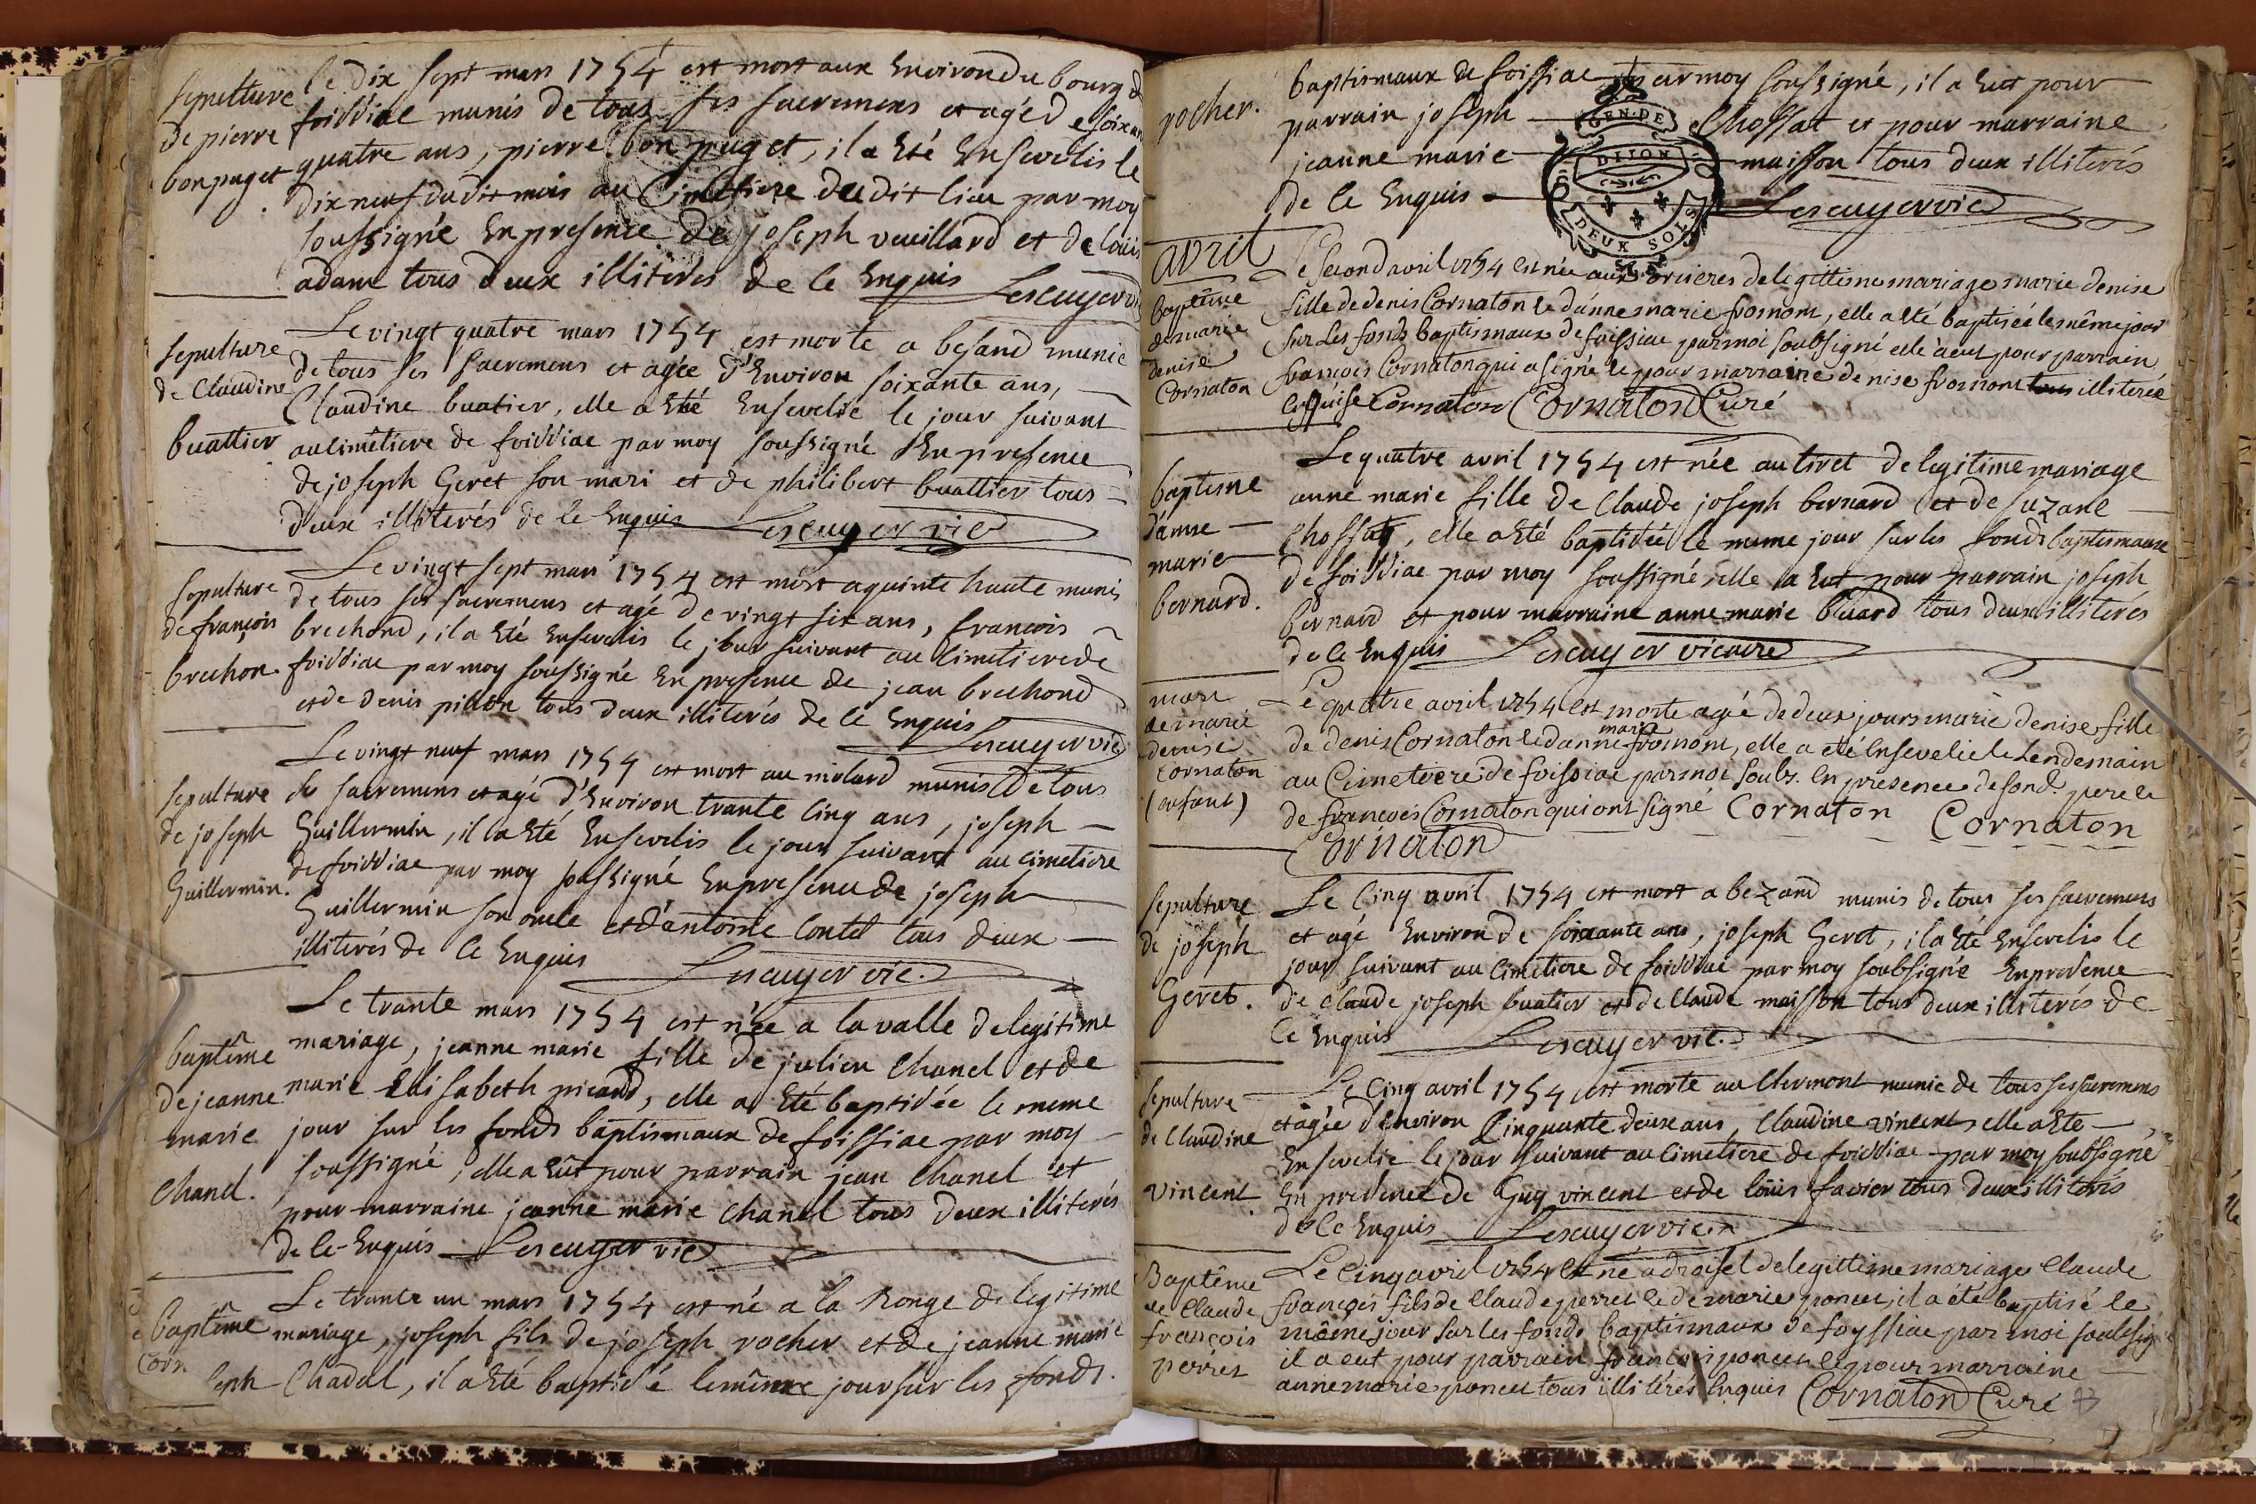 sepulture
de pierre
bonpuget
le dix sept mars 1754 est mort aux Environ du bourg de
foissiae munis de tous ses sacremens et agé de soixan
quatre ans, pierre bon puget, il a Eté Ensevelis le
dix neuf dudit mois au Cimetiere dudit lieu par moy
soussigné En presence de joseph veuillard et de louis
adam tous deux illiterés de ce Enquis Lescuyer vic
sepulture
de Claudine
buattier
Le vingt quatre mars 1754 est morte a besand munie
de tous ses sacremens et agée d'Environ soixante ans,
Claudine buatier, elle a Eté Ensevelie le jour suivant
au cimetiere de foissiae par moy soussigné En presence
de joseph Geret son mari et de philibert buattier tous
deux illiterés de ce Enquis Lescuyer vic
sepulture
de françois
brechon
Le vingt sept mars 1754 est mort a quinte haute munis
de tous ses sacremens et agé de vingt six ans, françois
brechond, il a Eté Ensevelis le jour suivant au Cimetiere de
foissiae par moy soussigné En presence de jean brechond
et de denis pillon tous deux illiterés de ce Enquis
Lescuyer vic
sepulture
de joseph
Guillermin.
Le vingt neuf mars 1754 est mort au molard munis de tous
ses sacremens et agé d'Environ trante cinq ans, joseph
Guillermin, il a Eté Ensevelis le jour suivant au cimetiere
de foissiae par moy soussigné En presence de joseph
Guillermin son oncle et d'antoine Contet tous deux
illiterés de ce Enquis Lescuyer vic.
baptême
de jeanne
marie
Chanel.
Le trante mars 1754 est née a la valle de legitime
mariage, jeanne marie fille de julien Chanel et de
marie Elisabeth picand, elle a Eté baptisée le meme
jour sur les fonds baptismaux de foissiae par moy
soussigné, elle a Eüt pour parrain jean Chanel et
pour marraine jeanne marie Chanel tous deux illiterés
de ce Enquis Lescuyer vic
baptême
Corn
seph
Le trante un mars 1754 est né a la Ronge de legitime
mariage, joseph fils de joseph rocher et de jeanne marie
Chadel, il a Eté baptisé le même jour sur les fonds.
rocher.
baptismaux de foissiae par moy soussigné, il a Eut pour
parrain joseph Chossat et pour marraine
jeanne marie maisson tous deux illiterés
de ce Enquis Lescuyer vic
GEN. DE
DIJON
DEUX SOLS
avril
baptême
de marie
denise
Cornaton
Le second avril 1754 est née aux orcieres de legittime mariage marie denise
fille de denis Cornaton & d'anne marie fromont, elle a été baptisée le même jour
sur les fonds baptismaux de foissiae par moi soubsigné elle a eut pour parrain
françois Cornaton qui a signé & pour marraine denise fromont illiterée
Enquise Cornaton Cornaton Curé
baptême
d'anne
marie
bernard.
Le quatre avril 1754 est née au tiret de legitime mariage
anne marie fille de Claude joseph bernard et de suzane
Chossat, elle a Eté baptisée le meme jour sur les fonds baptismaux
de foissiae par moy soussigné elle a Eut pour parrain joseph
bernard et pour marraine anne marie buard tous deux illiterés
de ce Enquis Lescuyer vicaire
mort
de marie
denise
Cornaton
(enfant)
Le quatre avril 1754 est morte agée de deux jours marie denise fille
de denis Cornaton & d'anne marie fromont, elle a été Ensevelie le Lendemain
au Cimetiere de foissiae par moi soubs. En presence de son d. pere &
de françois Cornaton qui ont signé Cornaton Cornaton
Cornaton
sepulture
de joseph
Geret.
Le Cinq avril 1754 est mort a bezand munis de tous ses sacremens
et agé Environ de soixante ans, joseph Geret, il a Eté Ensevelis le
jour suivant au Cimetiere de foissiae par moy soubsigné En presence
de Claude joseph buatier et de Claude maisson tous deux illiterés de
ce Enquis Lescuyer vic.
sepulture
de Claudine
vincent
Le Cinq avril 1754 est morte au Clermont munie de tous ses sacremens
et agée d'Environ Cinquante deux ans, Claudine vincent, elle a Eté
Ensevelie le jour suivant au Cimetiere de foissiae par moy soubsigné
En presence de Guy vincent et de loüis favier tous deux illiterés
de ce Enquis Lescuyer vic.
Baptême
de Claude
françois
perret
Le Cinq avril 1754 est né a droisel de legittime mariage Claude
françois fils de Claude perret & de marie poncet, il a été baptisé le
même jour sur les fonds baptismaux de foyssiae par moi soubsig
il a eut pour parrain françois poncet & pour marraine
anne marie poncet tous illiterés Enquis Cornaton Curé